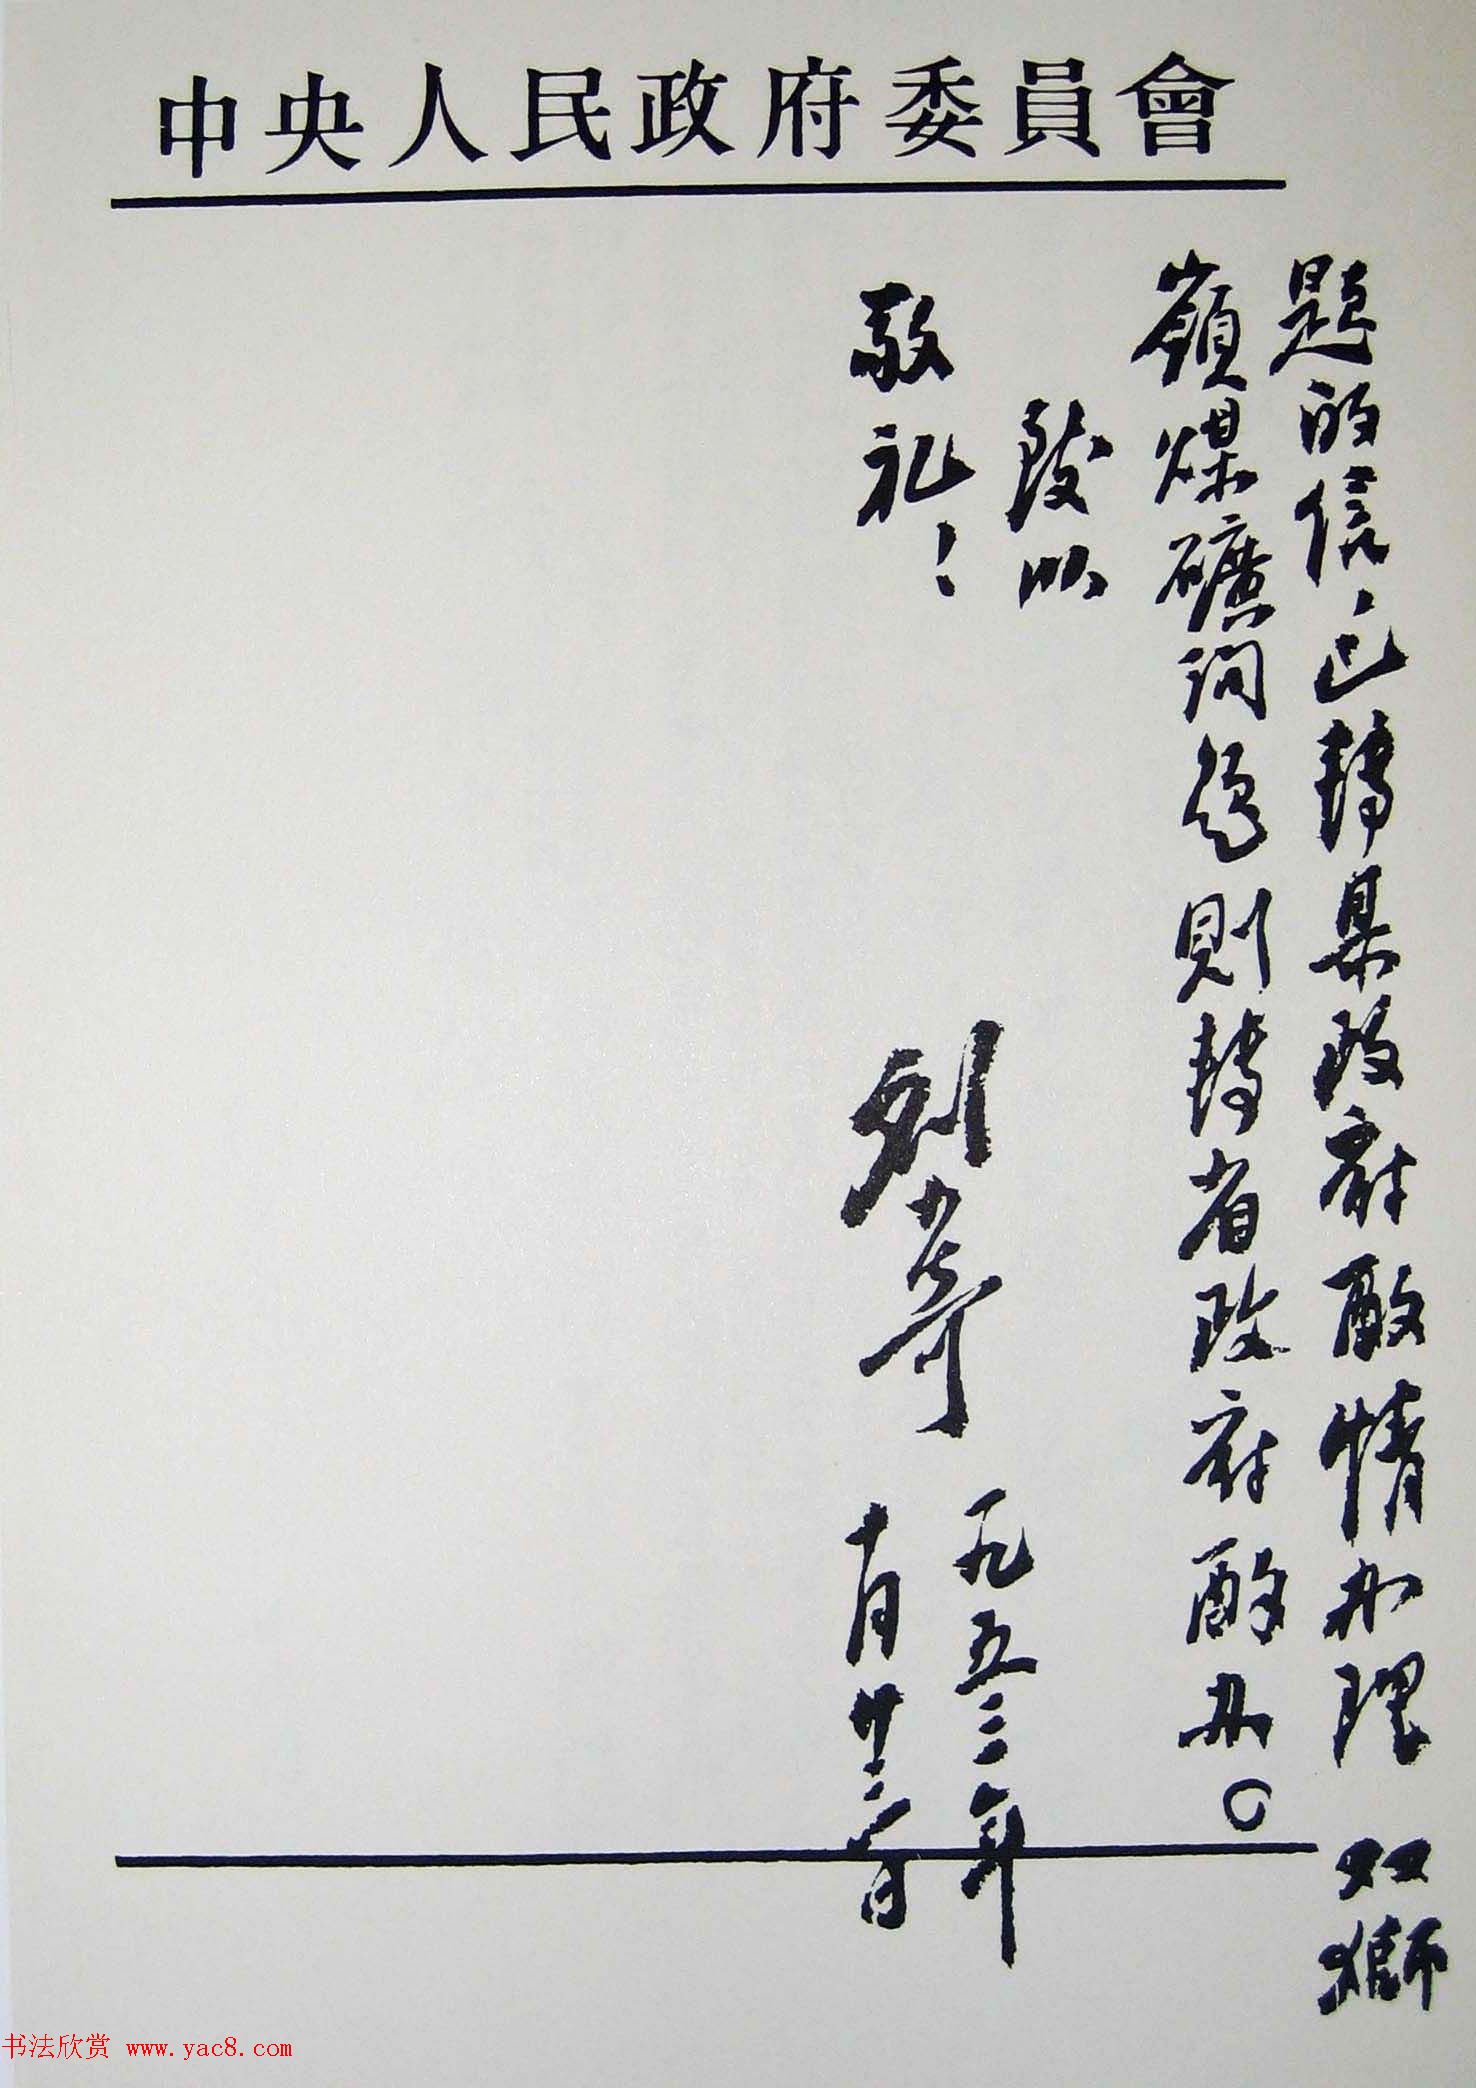 中央人民政府委員會
题的信，已轉县政府酌情办理 双獅
嶺煤礦问题則轉省政府酌办。
致以
敬礼！
刘少奇
一九五二年
十月廿二日
书法欣赏 www.yac8.com